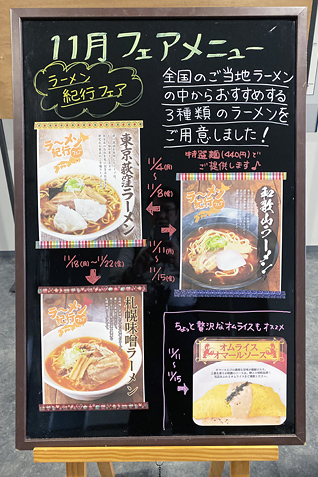 11月フェアメニュー
ラーメン
紀行フェア
全国のご当地ラーメン
の中からおすすめする
3種類のラーメンを
ご用意しました!
特製麺(440円)で
ご提供します♪
ラ〜メン
紀行
東京荻窪ラーメン
11/4(月)
〜
11/8(金)
ラ〜メン
紀行
和歌山ラーメン
11/11(月)
〜
11/15(金)
11/18(月)〜11/22(金)
ラ〜メン
紀行
札幌味噌ラーメン
ちょっと贅沢なオムライスもオススメ
11/11
〜
11/15
オムライス
オマールソース